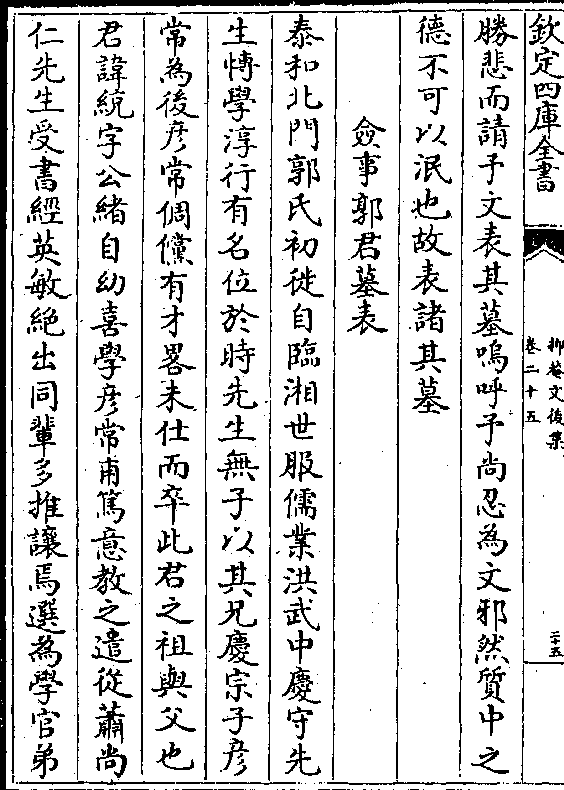 欽定四庫全書
抑菴文後集
卷二十五
二十五
勝悲而請予文表其墓嗚呼予尚忍為文邪然質中之
德不可以泯也故表諸其墓
僉事郭君墓表
泰和北門郭氏初徙自臨湘世服儒業洪武中慶守先
生慱學淳行有名位於時先生無子以其兄慶宗子彦
常為後彦常倜儻有才畧未仕而卒此君之祖與父也
君諱統字公緒自幼喜學彦常甫篤意教之遣從蕭尚
仁先生受書經英敏絶出同輩多推讓焉選為學官弟